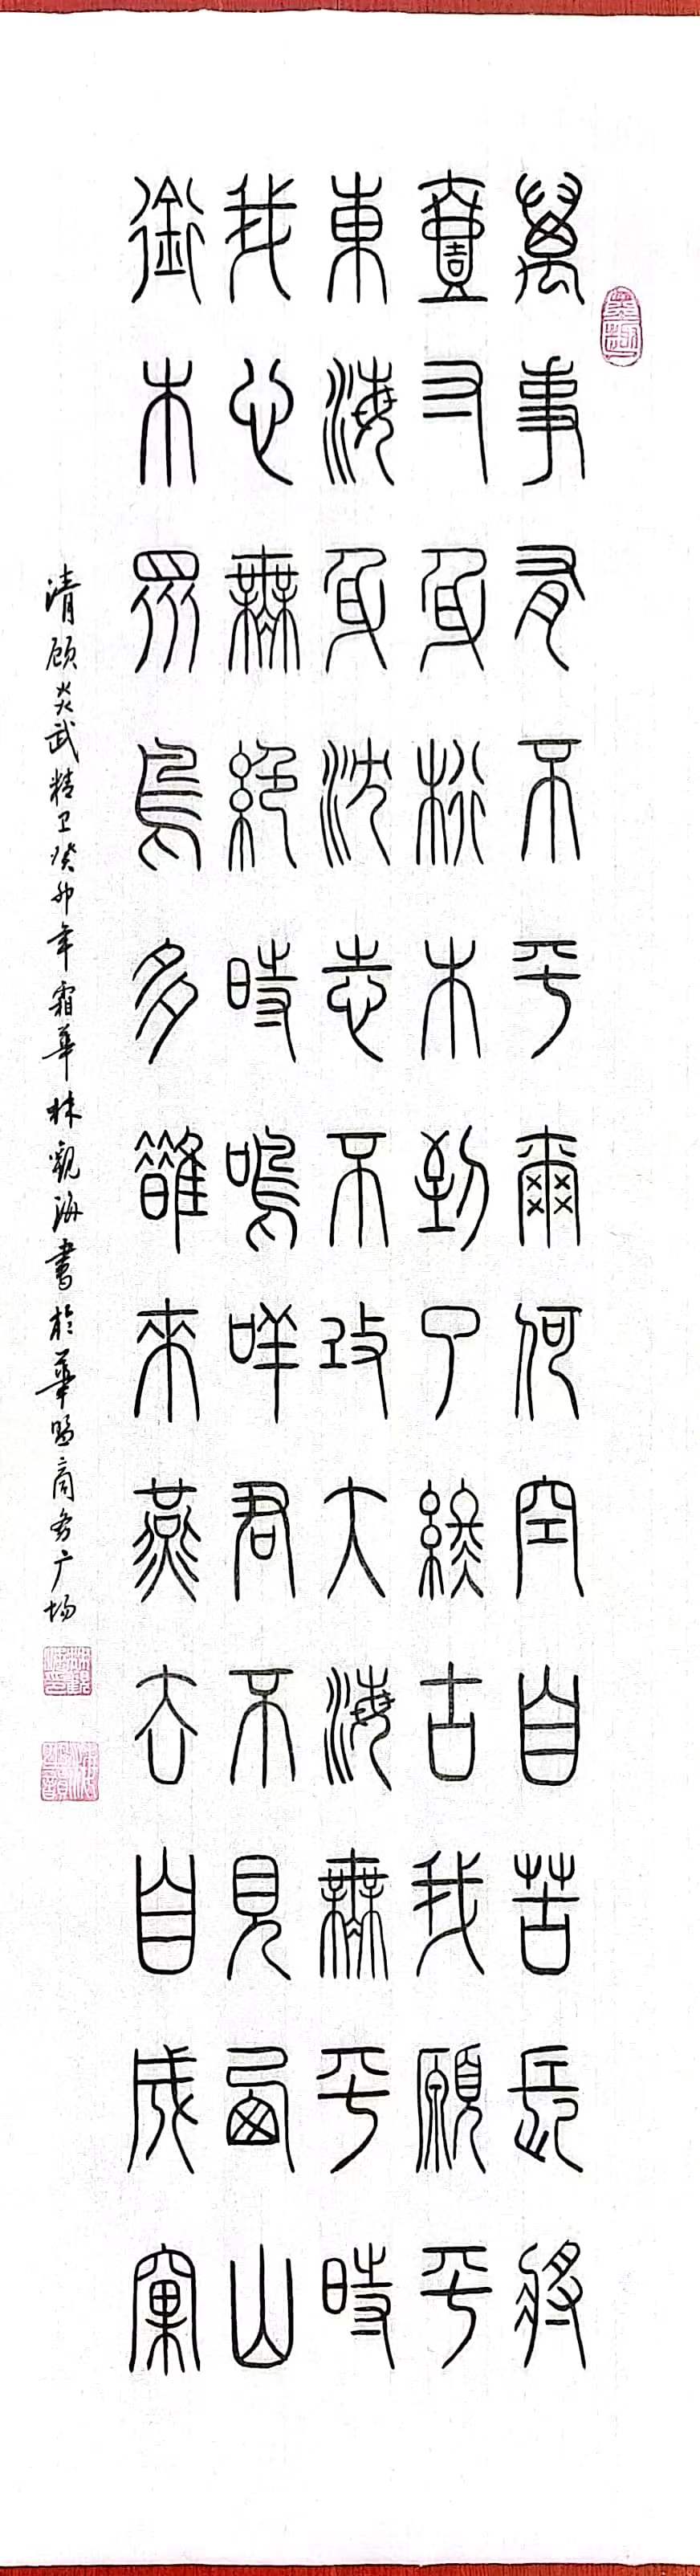 萬事有不平爾何空自苦長將
壹寸身木到了終古我願平
東海身沈志不改大海無平時
我心無絕時嗚呼君不見西山
銜木眾鳥多鵲來燕去自成窠
清顾炎武精卫癸卯年霜華林觀海書於華盟商务广场